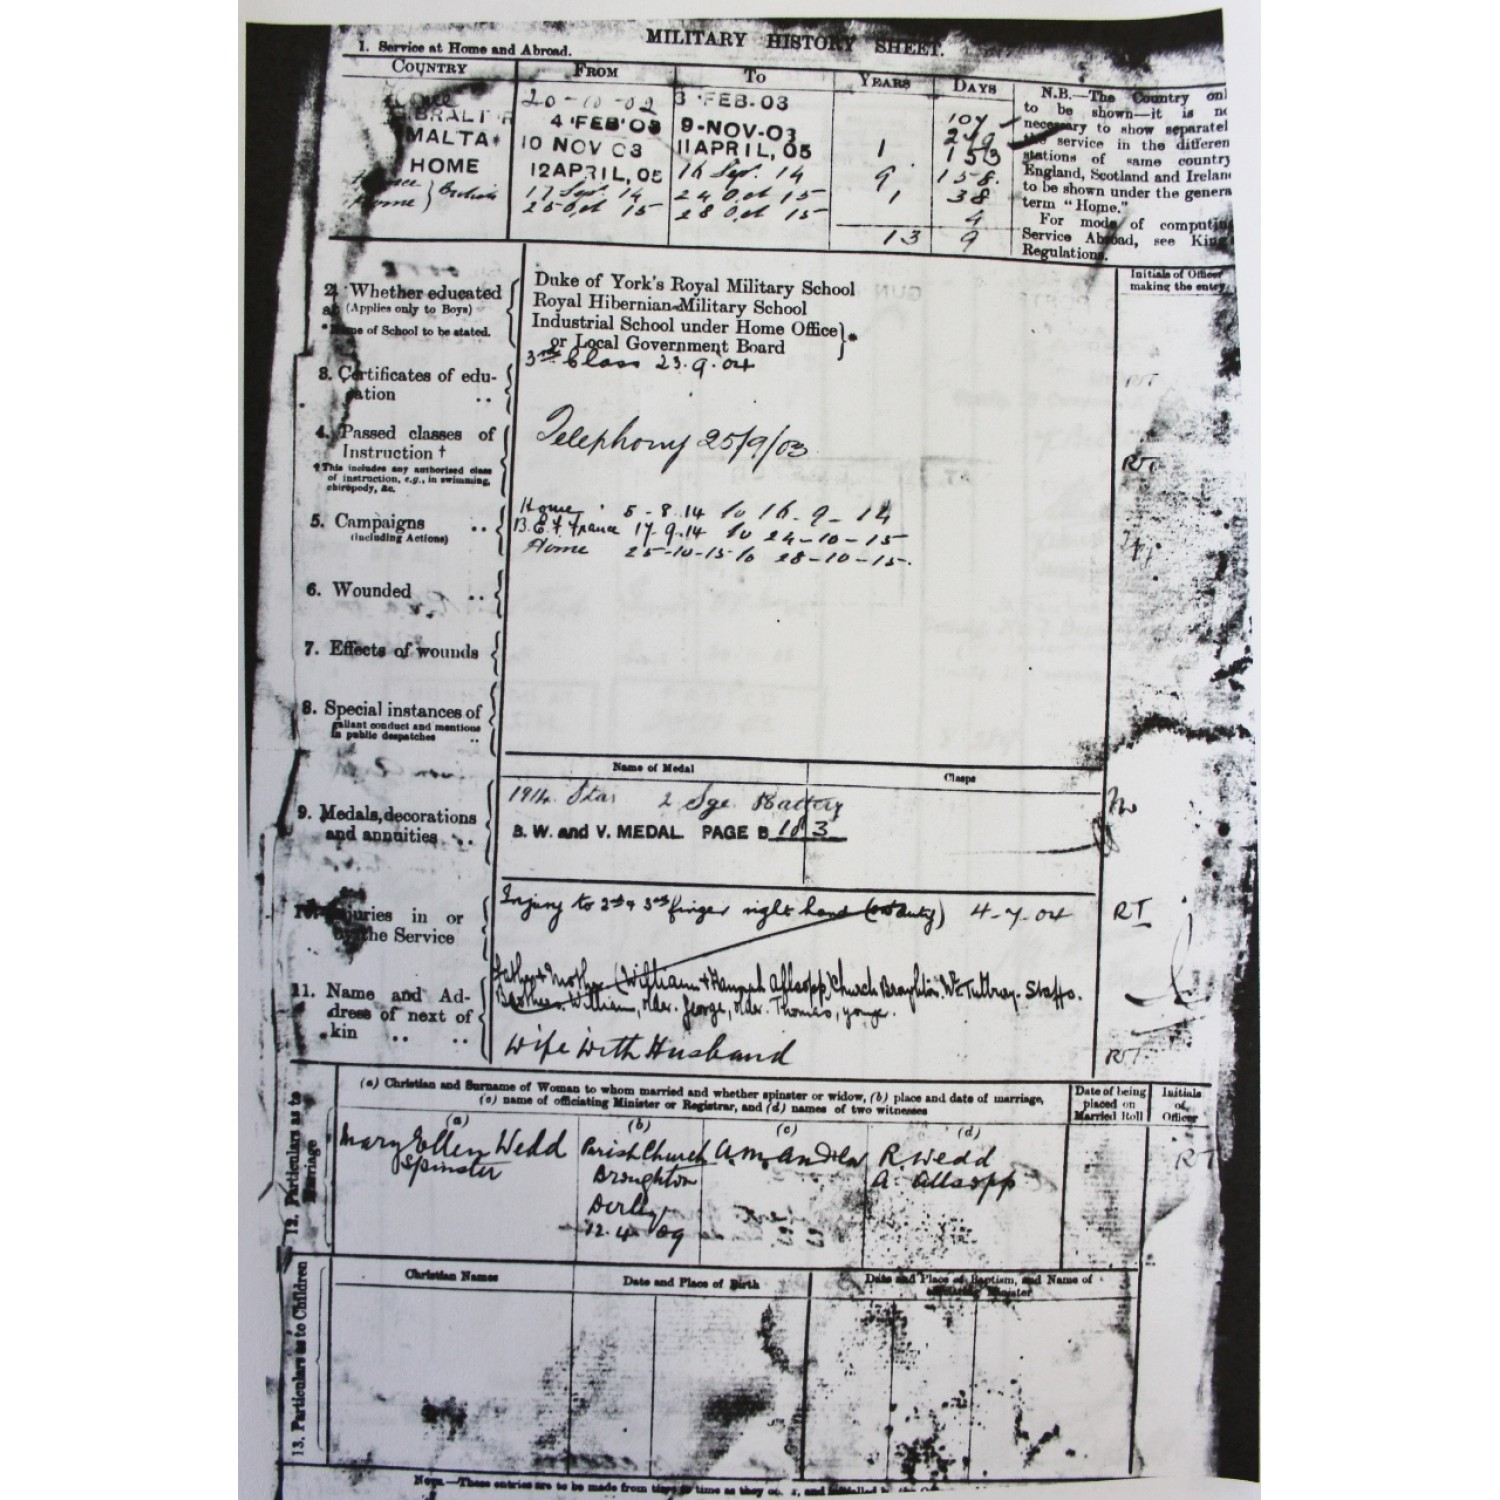 MILITARY HISTORY SHEET.
1. Service at Home and Abroad.
COUNTRY FROM TO YEARS DAYS
20-10-02 3 FEB.03 107
4 FEB'03 9-NOV-03 279
MALTA 10 NOV 03 11 APRIL, 05 1 153
HOME 12 APRIL, 05 16 Sept. 14 9 158.
17 Sept. 14 24 Oct 15 1 38
Home 25 Oct 15 28 Oct 15 4
13 9
N.B.—The Country onl
to be shown—it is no
necessary to show separatel
the service in the differen
stations of same country
England, Scotland and Irelan
to be shown under the genera
term "Home."
For mode of computing
Service Abroad, see King
Regulations.
Initials of Officer
making the entry
2. Whether educated
at (Applies only to Boys)
* Name of School to be stated.
Duke of York's Royal Military School
Royal Hibernian Military School
Industrial School under Home Office
or Local Government Board } *
3. Certificates of edu-
cation ..
3rd Class 23.9.04
4. Passed classes of
Instruction †
† This includes any authorised class
of instruction, e.g., in swimming,
chiropody, &c.
Telephony 25/9/03
RT
5. Campaigns ..
(including Actions)
Home 5-8.14 to 16-9-14
B.E.F. France 17.9.14 to 24-10-15
Home 25-10-15 to 28-10-15.
6. Wounded ..
7. Effects of wounds
8. Special instances of
gallant conduct and mentions
in public despatches ..
Name of Medal Clasps
9. Medals, decorations
and annuities ..
1914 Star 2 Sge. Battery
B. W. and V. MEDAL PAGE B 183
10. Injuries in or
by the Service
Injury to 2nd & 3rd finger right hand (on duty) 4-7-04
RT
11. Name and Ad-
dress of next of
kin .. ..
Father & Mother (William & Hannah Allsopp) Church Broughton. Nr Tutbury. Staffs.
Brothers. William, older. George, older. Thomas, younger.
Wife with Husband
RT
12. Particulars as to
Marriage
(a) Christian and Surname of Woman to whom married and whether spinster or widow, (b) place and date of marriage,
(c) name of officiating Minister or Registrar, and (d) names of two witnesses
Date of being
placed on
Married Roll
Initials
of
Officer
(a) (b) (c) (d)
Mary Ellen Wedd Parish Church R. Wedd
Spinster Broughton A. Allsopp
Derby
12.4.09
RT
13. Particulars as to Children
Christian Names Date and Place of Birth Date and Place of Baptism, and Name of
officiating Minister
NOTE.—These entries are to be made from time to time as they